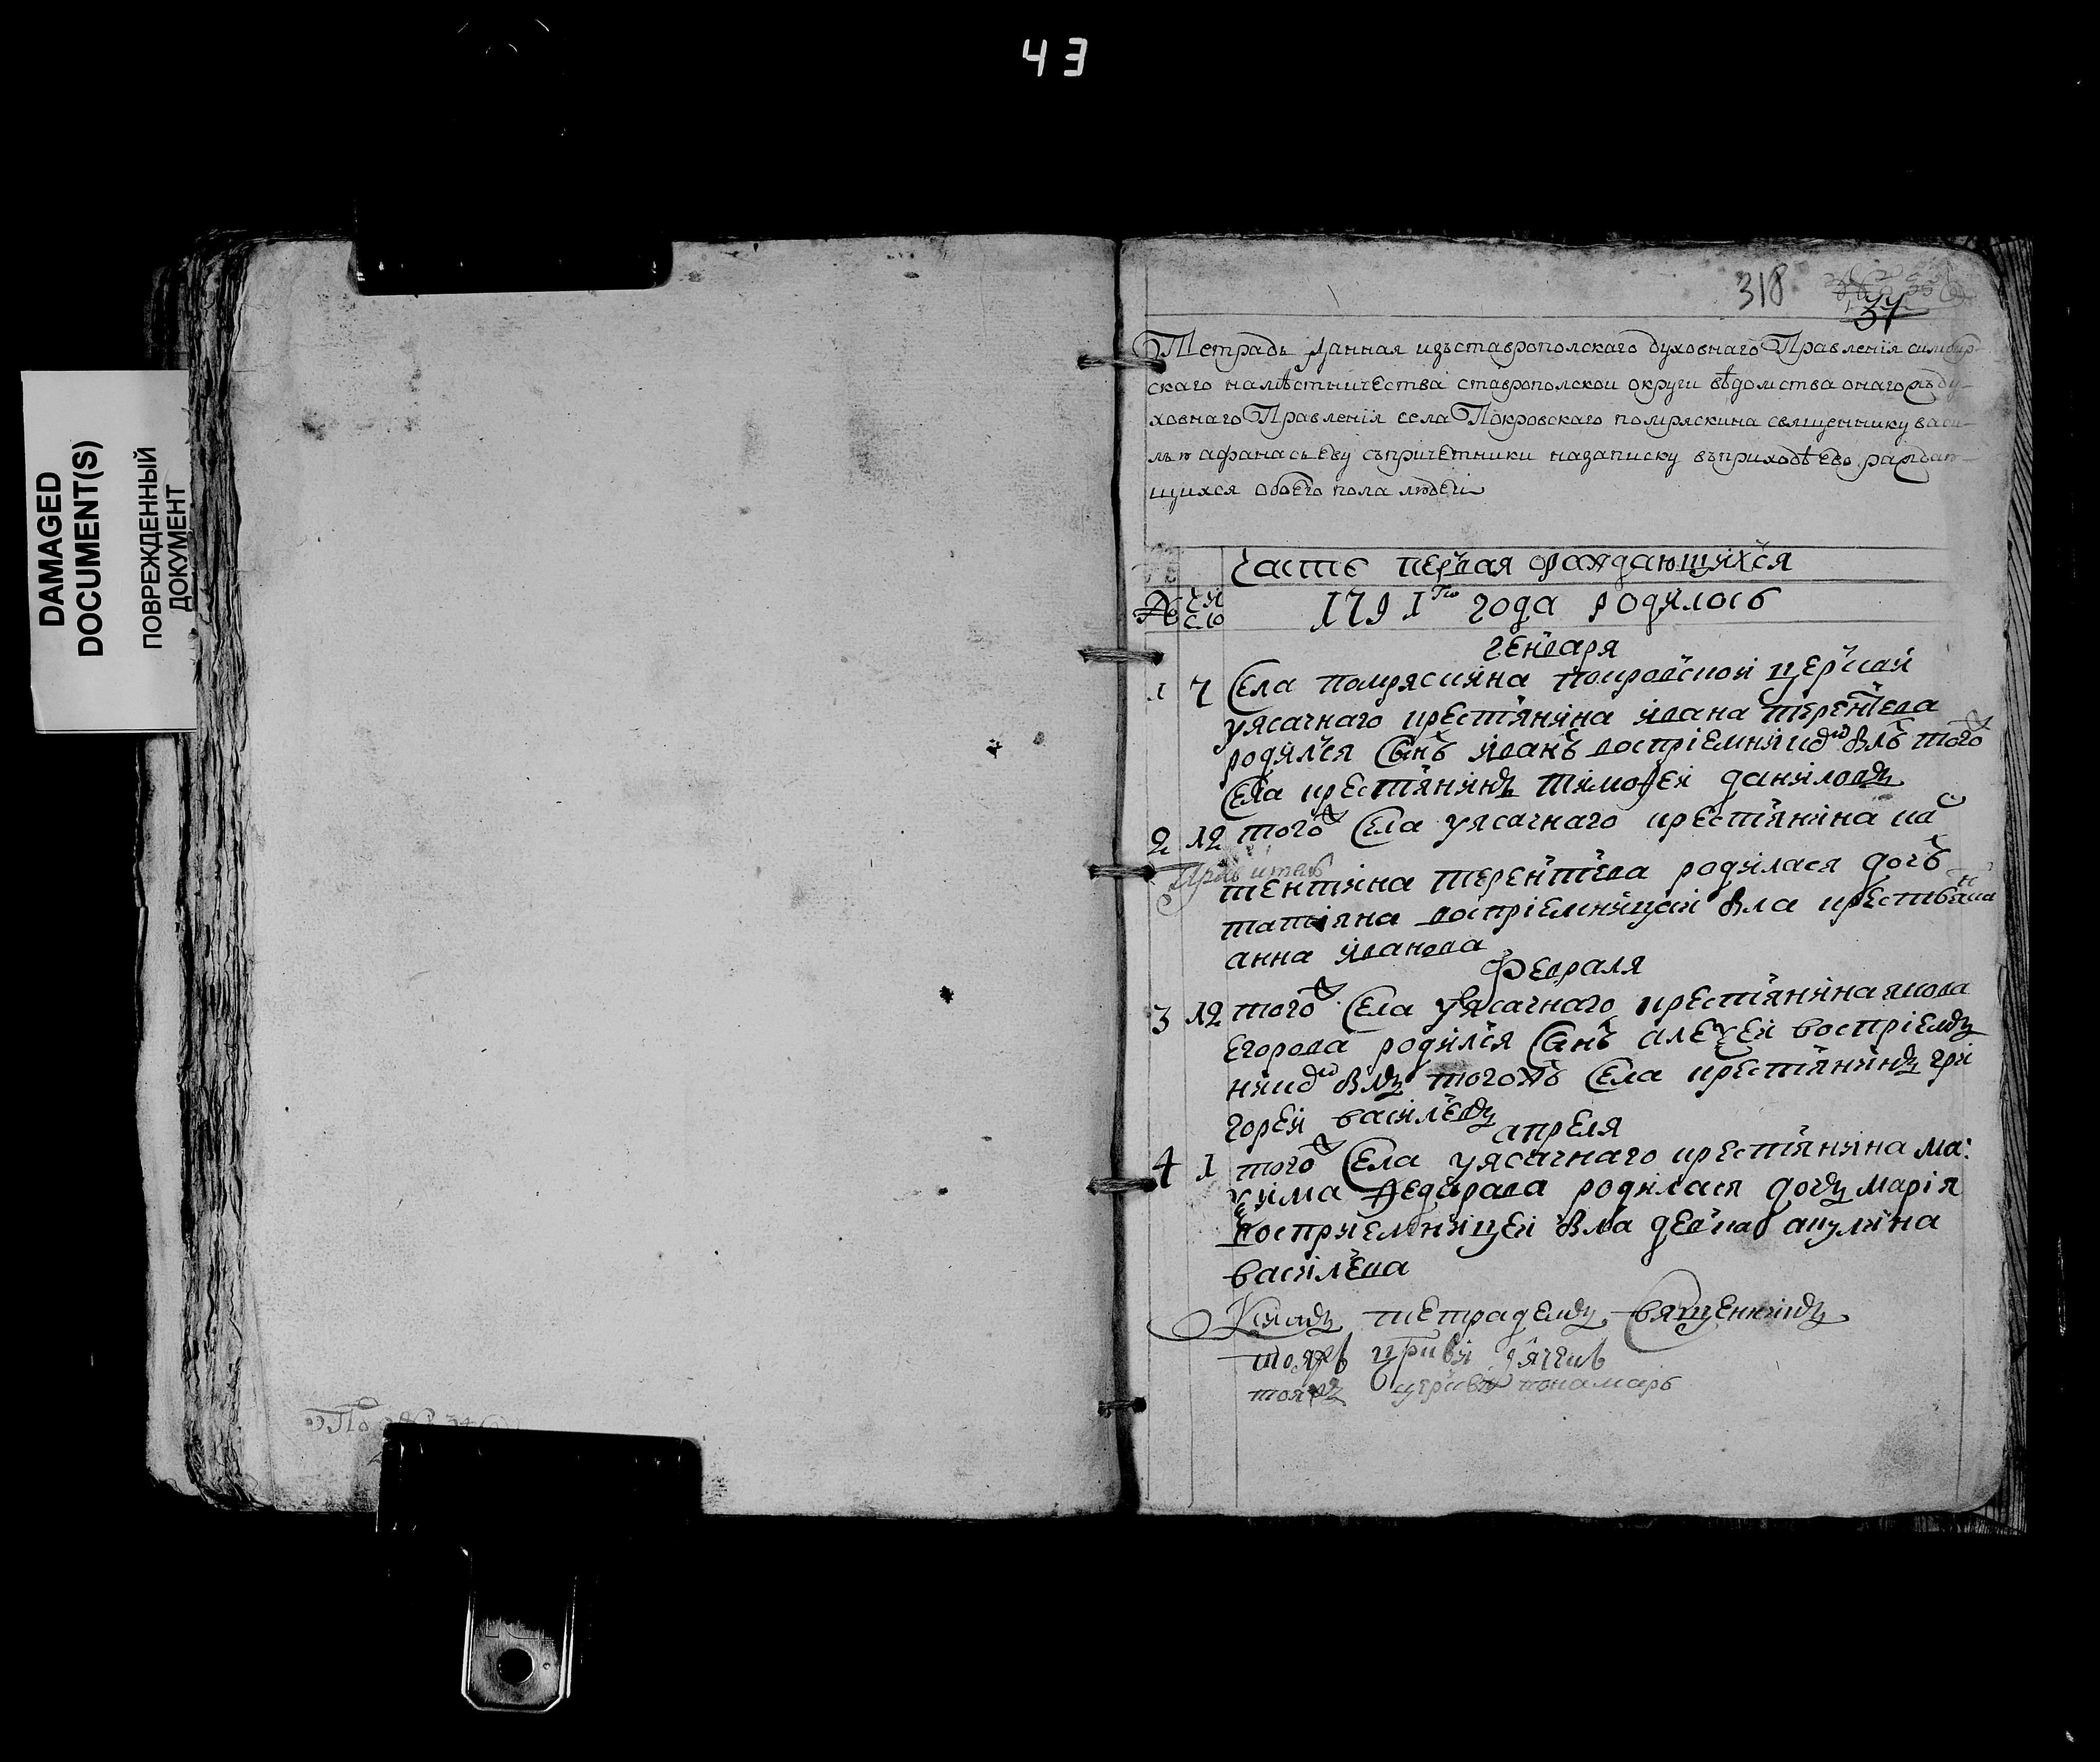 43
DAMAGED
DOCUMENT(S)
ПОВРЕЖДЕННЫЙ
ДОКУМЕНТ
318
37
Тетрадь Данная изъ ставрополскаго духовнаго Правленія симбир-
скаго намѣстничества ставрополской округи вѣдомства онагожъ ду-
ховнаго Правленія села Покровскаго помряскина священнику васи-
лью афанасьеву съпричетники назаписку въприходѣ ево раждаю-
щихся обоего пола людей
часть первая ораждающихся
№ чи сло 1791го года родилось
генваря
1 7 Села помряскина покровской церкви
уясачнаго крестянина ивана терентева
родился сынъ иванъ воспріемникомъ былъ тогож
села крестянинъ тимофей даниловъ
2 12 тогож села уясачнаго крестянина кас
тентина терентева родилася дочь
татіяна воспріемницай была крестьянка
анна иванова
февраля
3 12 тогож села уясачнаго крестянина якова
егорова родился сынъ алексей воспріем
никомъ былъ тогожъ села крестянинъ гри
горей василевъ
апреля
4 1 тогож села уясачнаго крестянина ма:
ксима федарава родилася дочъ марія
воспріемницей была девка акулина
василева
Ксимъ тетрадемъ священникъ
тояжъ церкви дячекъ
тояжъ церкви понамарь